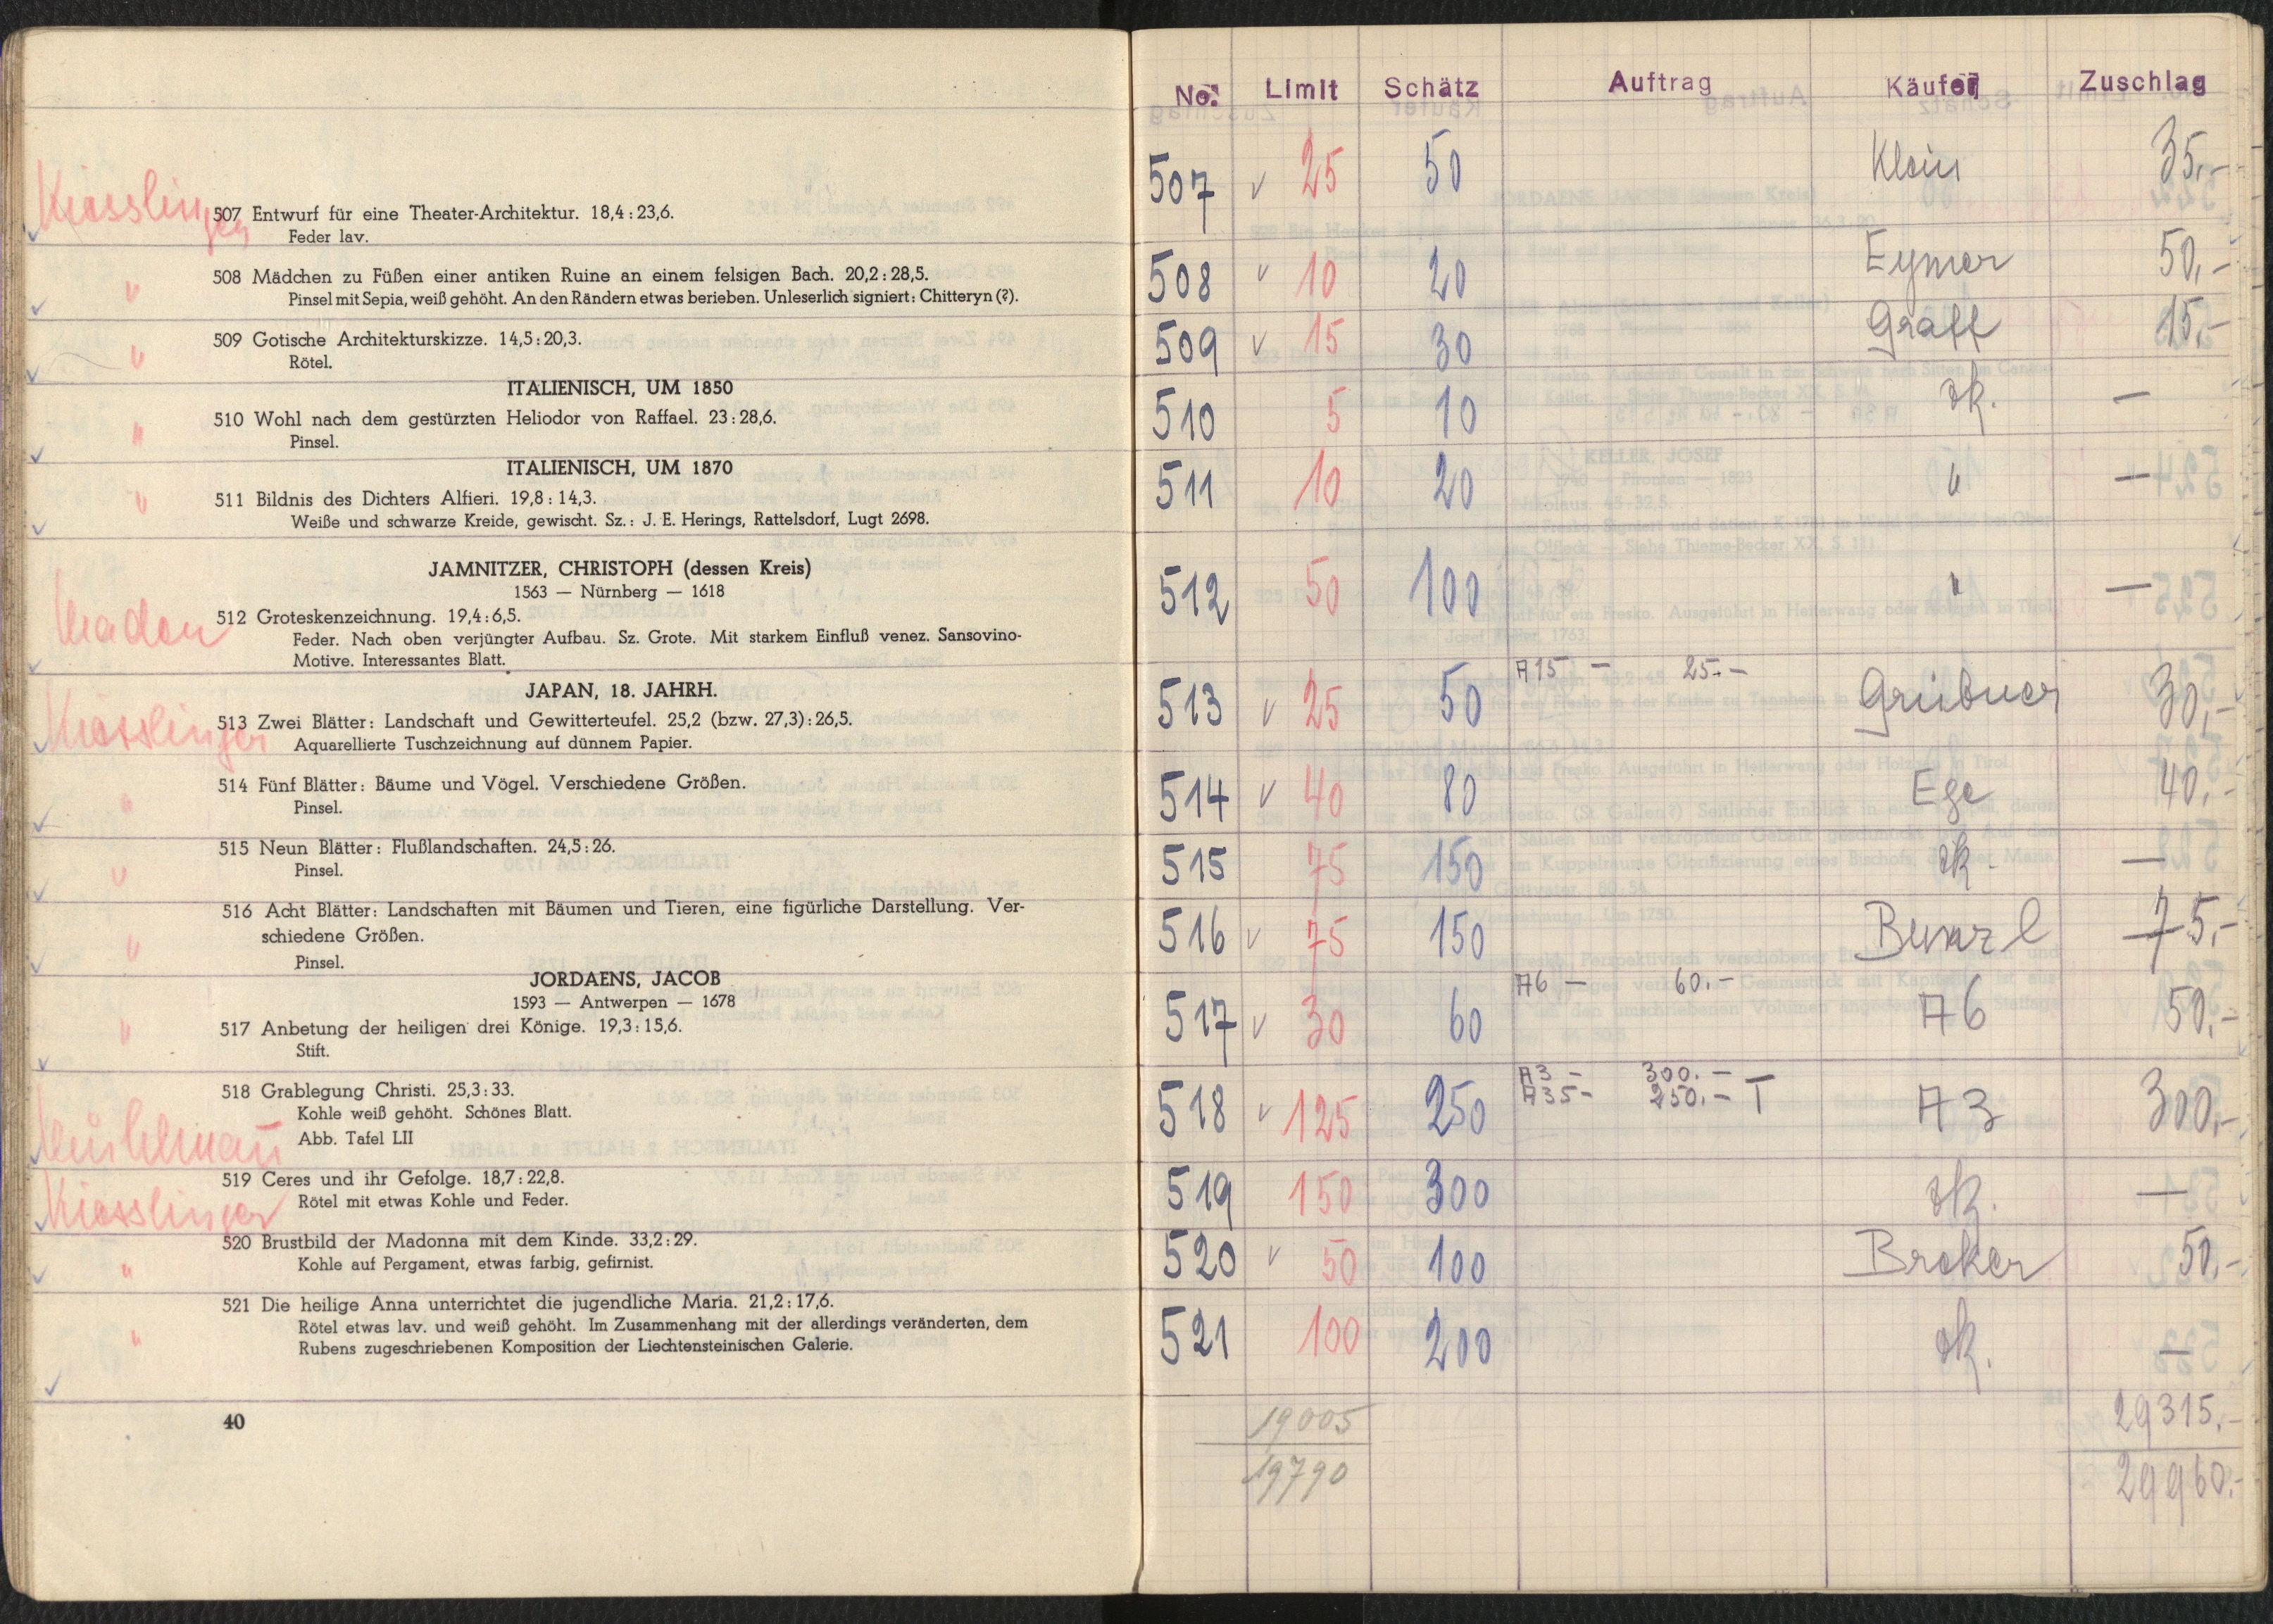 Kiesslinger
507 Entwurf für eine Theater-Architektur. 18,4 : 23,6.
Feder lav.
" 508 Mädchen zu Füßen einer antiken Ruine an einem felsigen Bach. 20,2 : 28,5.
Pinsel mit Sepia, weiß gehöht. An den Rändern etwas berieben. Unleserlich signiert: Chitteryn (?).
" 509 Gotische Architekturskizze. 14,5 : 20,3.
Rötel.
ITALIENISCH, UM 1850
" 510 Wohl nach dem gestürzten Heliodor von Raffael. 23 : 28,6.
Pinsel.
ITALIENISCH, UM 1870
" 511 Bildnis des Dichters Alfieri. 19,8 : 14,3.
Weiße und schwarze Kreide, gewischt. Sz.: J. E. Herings, Rattelsdorf, Lugt 2698.
JAMNITZER, CHRISTOPH (dessen Kreis)
1563 — Nürnberg — 1618
512 Groteskenzeichnung. 19,4 : 6,5.
Feder. Nach oben verjüngter Aufbau. Sz. Grote. Mit starkem Einfluß venez. Sansovino-
Motive. Interessantes Blatt.
JAPAN, 18. JAHRH.
Kiesslinger
513 Zwei Blätter: Landschaft und Gewitterteufel. 25,2 (bzw. 27,3) : 26,5.
Aquarellierte Tuschzeichnung auf dünnem Papier.
" 514 Fünf Blätter: Bäume und Vögel. Verschiedene Größen.
Pinsel.
" 515 Neun Blätter: Flußlandschaften. 24,5 : 26.
Pinsel.
" 516 Acht Blätter: Landschaften mit Bäumen und Tieren, eine figürliche Darstellung. Ver-
schiedene Größen.
Pinsel.
JORDAENS, JACOB
1593 — Antwerpen — 1678
" 517 Anbetung der heiligen drei Könige. 19,3 : 15,6.
Stift.
518 Grablegung Christi. 25,3 : 33.
Kohle weiß gehöht. Schönes Blatt.
Abb. Tafel LII
519 Ceres und ihr Gefolge. 18,7 : 22,8.
Kiesslinger
Rötel mit etwas Kohle und Feder.
" 520 Brustbild der Madonna mit dem Kinde. 33,2 : 29.
Kohle auf Pergament, etwas farbig, gefirnist.
" 521 Die heilige Anna unterrichtet die jugendliche Maria. 21,2 : 17,6.
Rötel etwas lav. und weiß gehöht. Im Zusammenhang mit der allerdings veränderten, dem
Rubens zugeschriebenen Komposition der Liechtensteinischen Galerie.
40
No. Limit Schätz Auftrag Käufer Zuschlag
507 25 50 Klein 35.-
508 10 20 Eymer 50.-
509 15 30 Graff 15.-
510 5 10 zk. —
511 10 20 " —
512 50 100 " —
A15 — 25.—
513 25 50 Grübner 30.-
514 40 80 Ege 40.-
515 75 150 zk. —
516 75 150 Bunzl 75.-
A6 — 60.—
517 30 60 A6 50.-
A3 — 300.—
A35 — 250.— T
518 125 250 A3 300.-
519 150 300 zk. —
520 50 100 Broker 50.-
521 100 200 zk. —
19005 29315.-
19790 29960.-